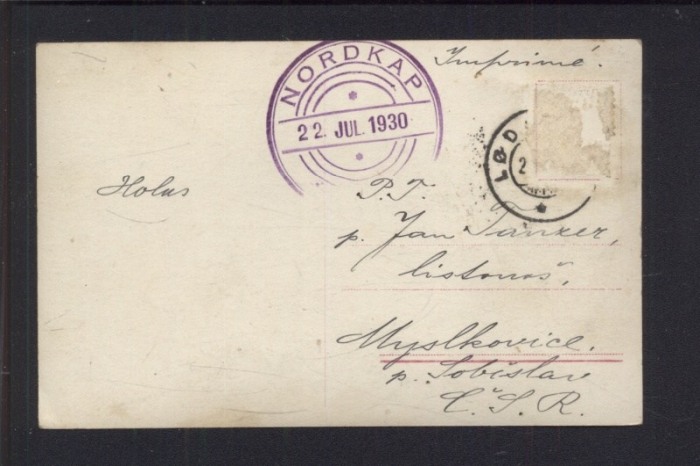 NORDKAP
22. JUL. 1930
Imprimé.
LØD
2
Holas
P.T.
p. Jan Tanzer,
listonoš,
Myslkovice.
p. Soběslav
Č.S.R.